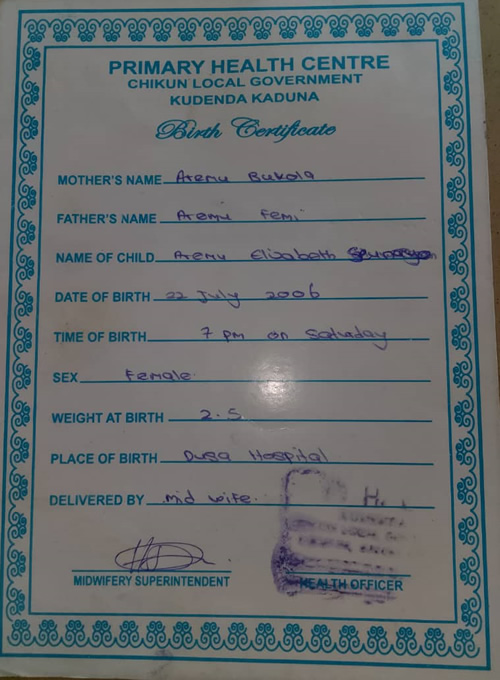 PRIMARY HEALTH CENTRE
CHIKUN LOCAL GOVERNMENT
KUDENDA KADUNA
Birth Certificate
MOTHER'S NAME Aremu Bukola
FATHER'S NAME Aremu Femi
NAME OF CHILD Aremu Elizabeth
DATE OF BIRTH 22 July 2006
TIME OF BIRTH 7 pm on Satuday
SEX Female
WEIGHT AT BIRTH 2.5
PLACE OF BIRTH Hospital
DELIVERED BY Mid wife
MIDWIFERY SUPERINTENDENT
HEALTH OFFICER